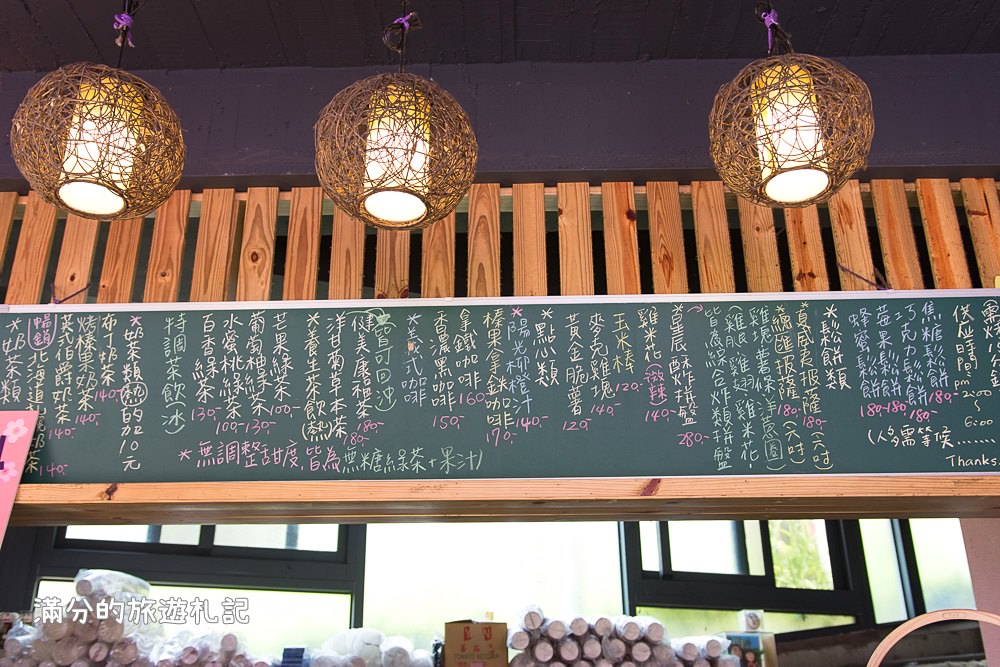 供應時間
pm 2:00
~
6:00
(人多需等候......
Thanks.
焦糖鬆餅 180-
巧克力鬆餅 180-
蜂蜜鬆餅 180-
*鬆餅類
*夏威夷披薩 180-(六吋)
*總匯披薩 180-(六吋)
(雞塊.薯條.洋蔥圈)
皆為綜合炸類拼盤
*星辰酥炸拼盤 280-
雞米花(微辣) 140-
玉米棒 120-
麥克雞塊 140-
黃金脆薯 120-
*點心類
*陽光柳橙汁 140-
榛果拿鐵咖啡 170-
拿鐵咖啡 160-
香濃黑咖啡 150-
*義式咖啡
(皆可回沖)
健美康福茶 180-
洋甘菊草本茶 180-
*養生茶飲(熱)
芒果綠茶 100-
葡萄柚綠茶 130-
水蜜桃綠茶 100-
百香綠茶 130-
特調茶飲(冰)
*無調整甜度,皆為無糖綠茶+果汁)
*奶茶類(熱)的加10元
布丁奶茶 140-
烤榛果奶茶 140-
英式伯爵奶茶 140-
暢銷 北海道
140-
*奶茶類
滿分的旅遊札記